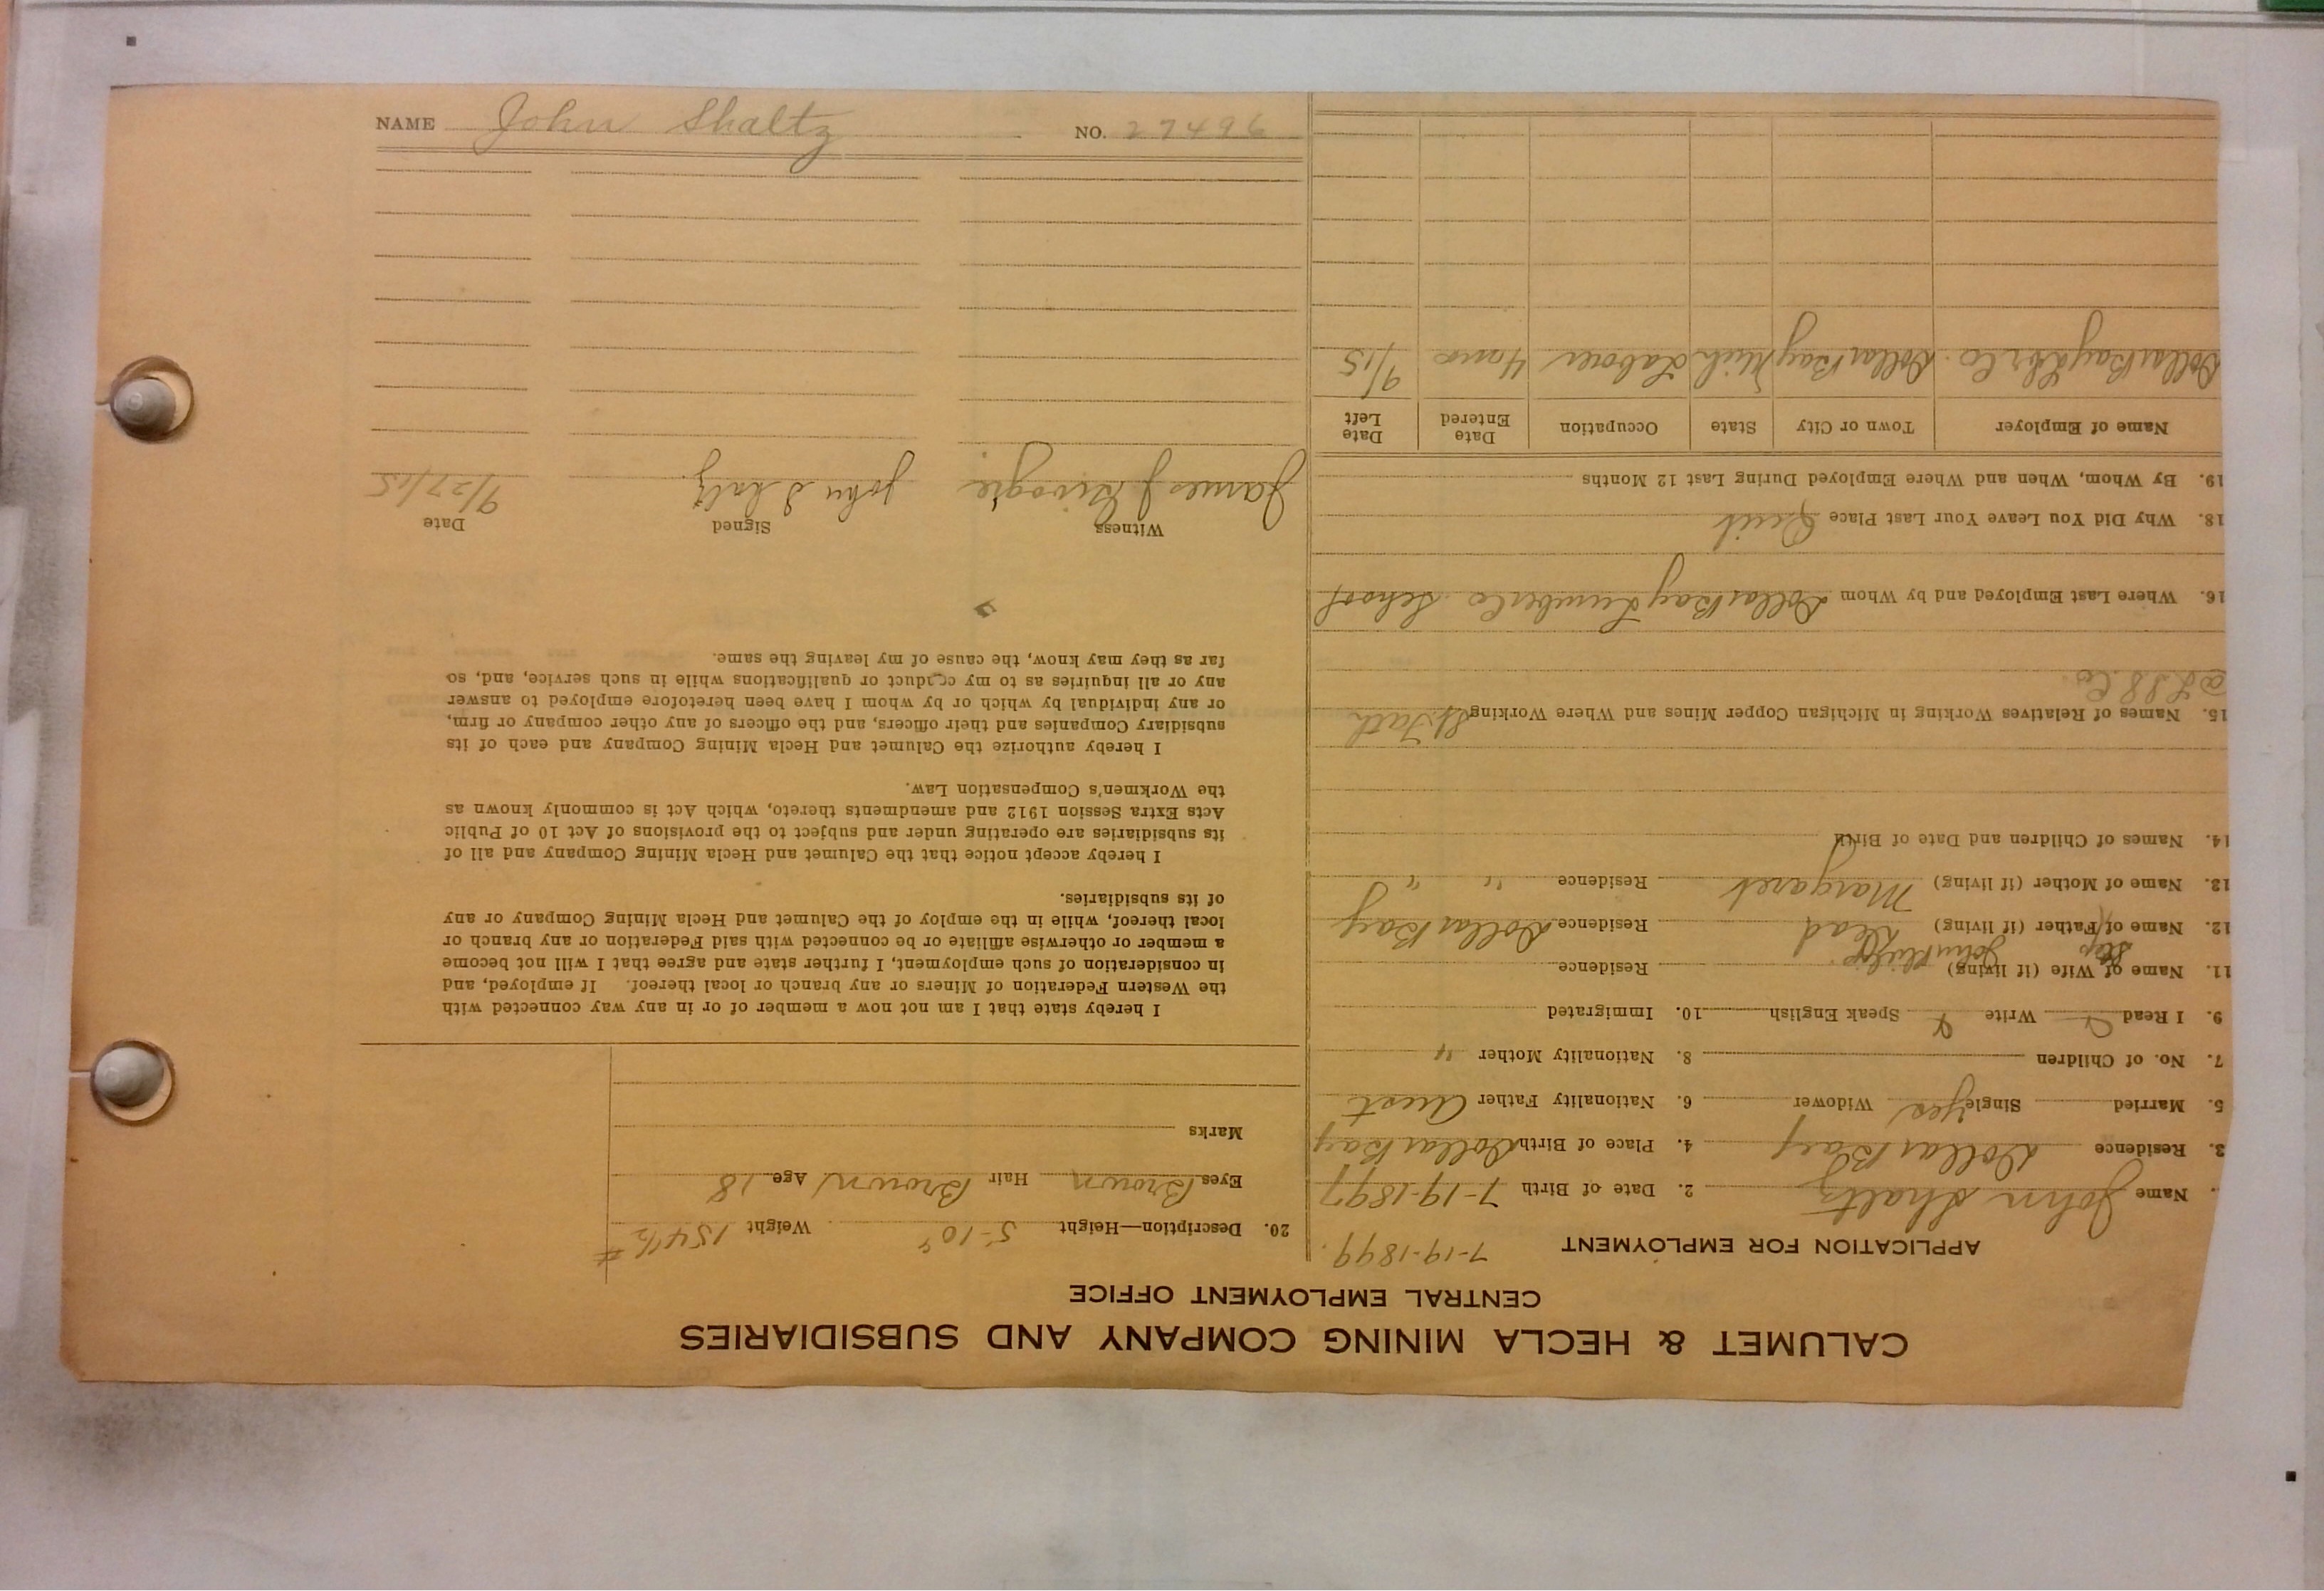 NAME John Shaltz NO. 27496
CALUMET & HECLA MINING COMPANY AND SUBSIDIARIES
CENTRAL EMPLOYMENT OFFICE
APPLICATION FOR EMPLOYMENT 7-19-1899.
Name John Shaltz 2. Date of Birth 7-19-1897
3. Residence Dollar Bay 4. Place of Birth Dollar Bay
5. Married Single yes Widower 6. Nationality Father Aust
7. No. of Children 8. Nationality Mother "
9. I Read Write Speak English 10. Immigrated
11. Name of Wife (if living) Residence
Step John
12. Name of Father (if living) Dead Residence Dollar Bay
13. Name of Mother (if living) Margaret Residence " "
14. Names of Children and Date of Birth
15. Names of Relatives Working in Michigan Copper Mines and Where Working St. Fath
@ L S S. Co
16. Where Last Employed and by Whom Dollar Bay Lumber Co. School
18. Why Did You Leave Your Last Place Quit
19. By Whom, When and Where Employed During Last 12 Months
Name of Employer Town or City State Occupation Date Entered Date Left
Dollar Bay Lbr Co. Dollar Bay Mich Laborer 4 mos 9/15
20. Description—Height 5-10" Weight 154½ #
Eyes Brown Hair Brown Age 18
Marks
I hereby state that I am not now a member of or in any way connected with
the Western Federation of Miners or any branch or local thereof. If employed, and
in consideration of such employment, I further state and agree that I will not become
a member or otherwise affiliate or be connected with said Federation or any branch or
local thereof, while in the employ of the Calumet and Hecla Mining Company or any
of its subsidiaries.
I hereby accept notice that the Calumet and Hecla Mining Company and all of
its subsidiaries are operating under and subject to the provisions of Act 10 of Public
Acts Extra Session 1912 and amendments thereto, which Act is commonly known as
the Workmen's Compensation Law.
I hereby authorize the Calumet and Hecla Mining Company and each of its
subsidiary Companies and their officers, and the officers of any other company or firm,
or any individual by which or by whom I have been heretofore employed to answer
any or all inquiries as to my conduct or qualifications while in such service, and, so
far as they may know, the cause of my leaving the same.
Witness Signed Date
James J John Shaltz 9/27/15